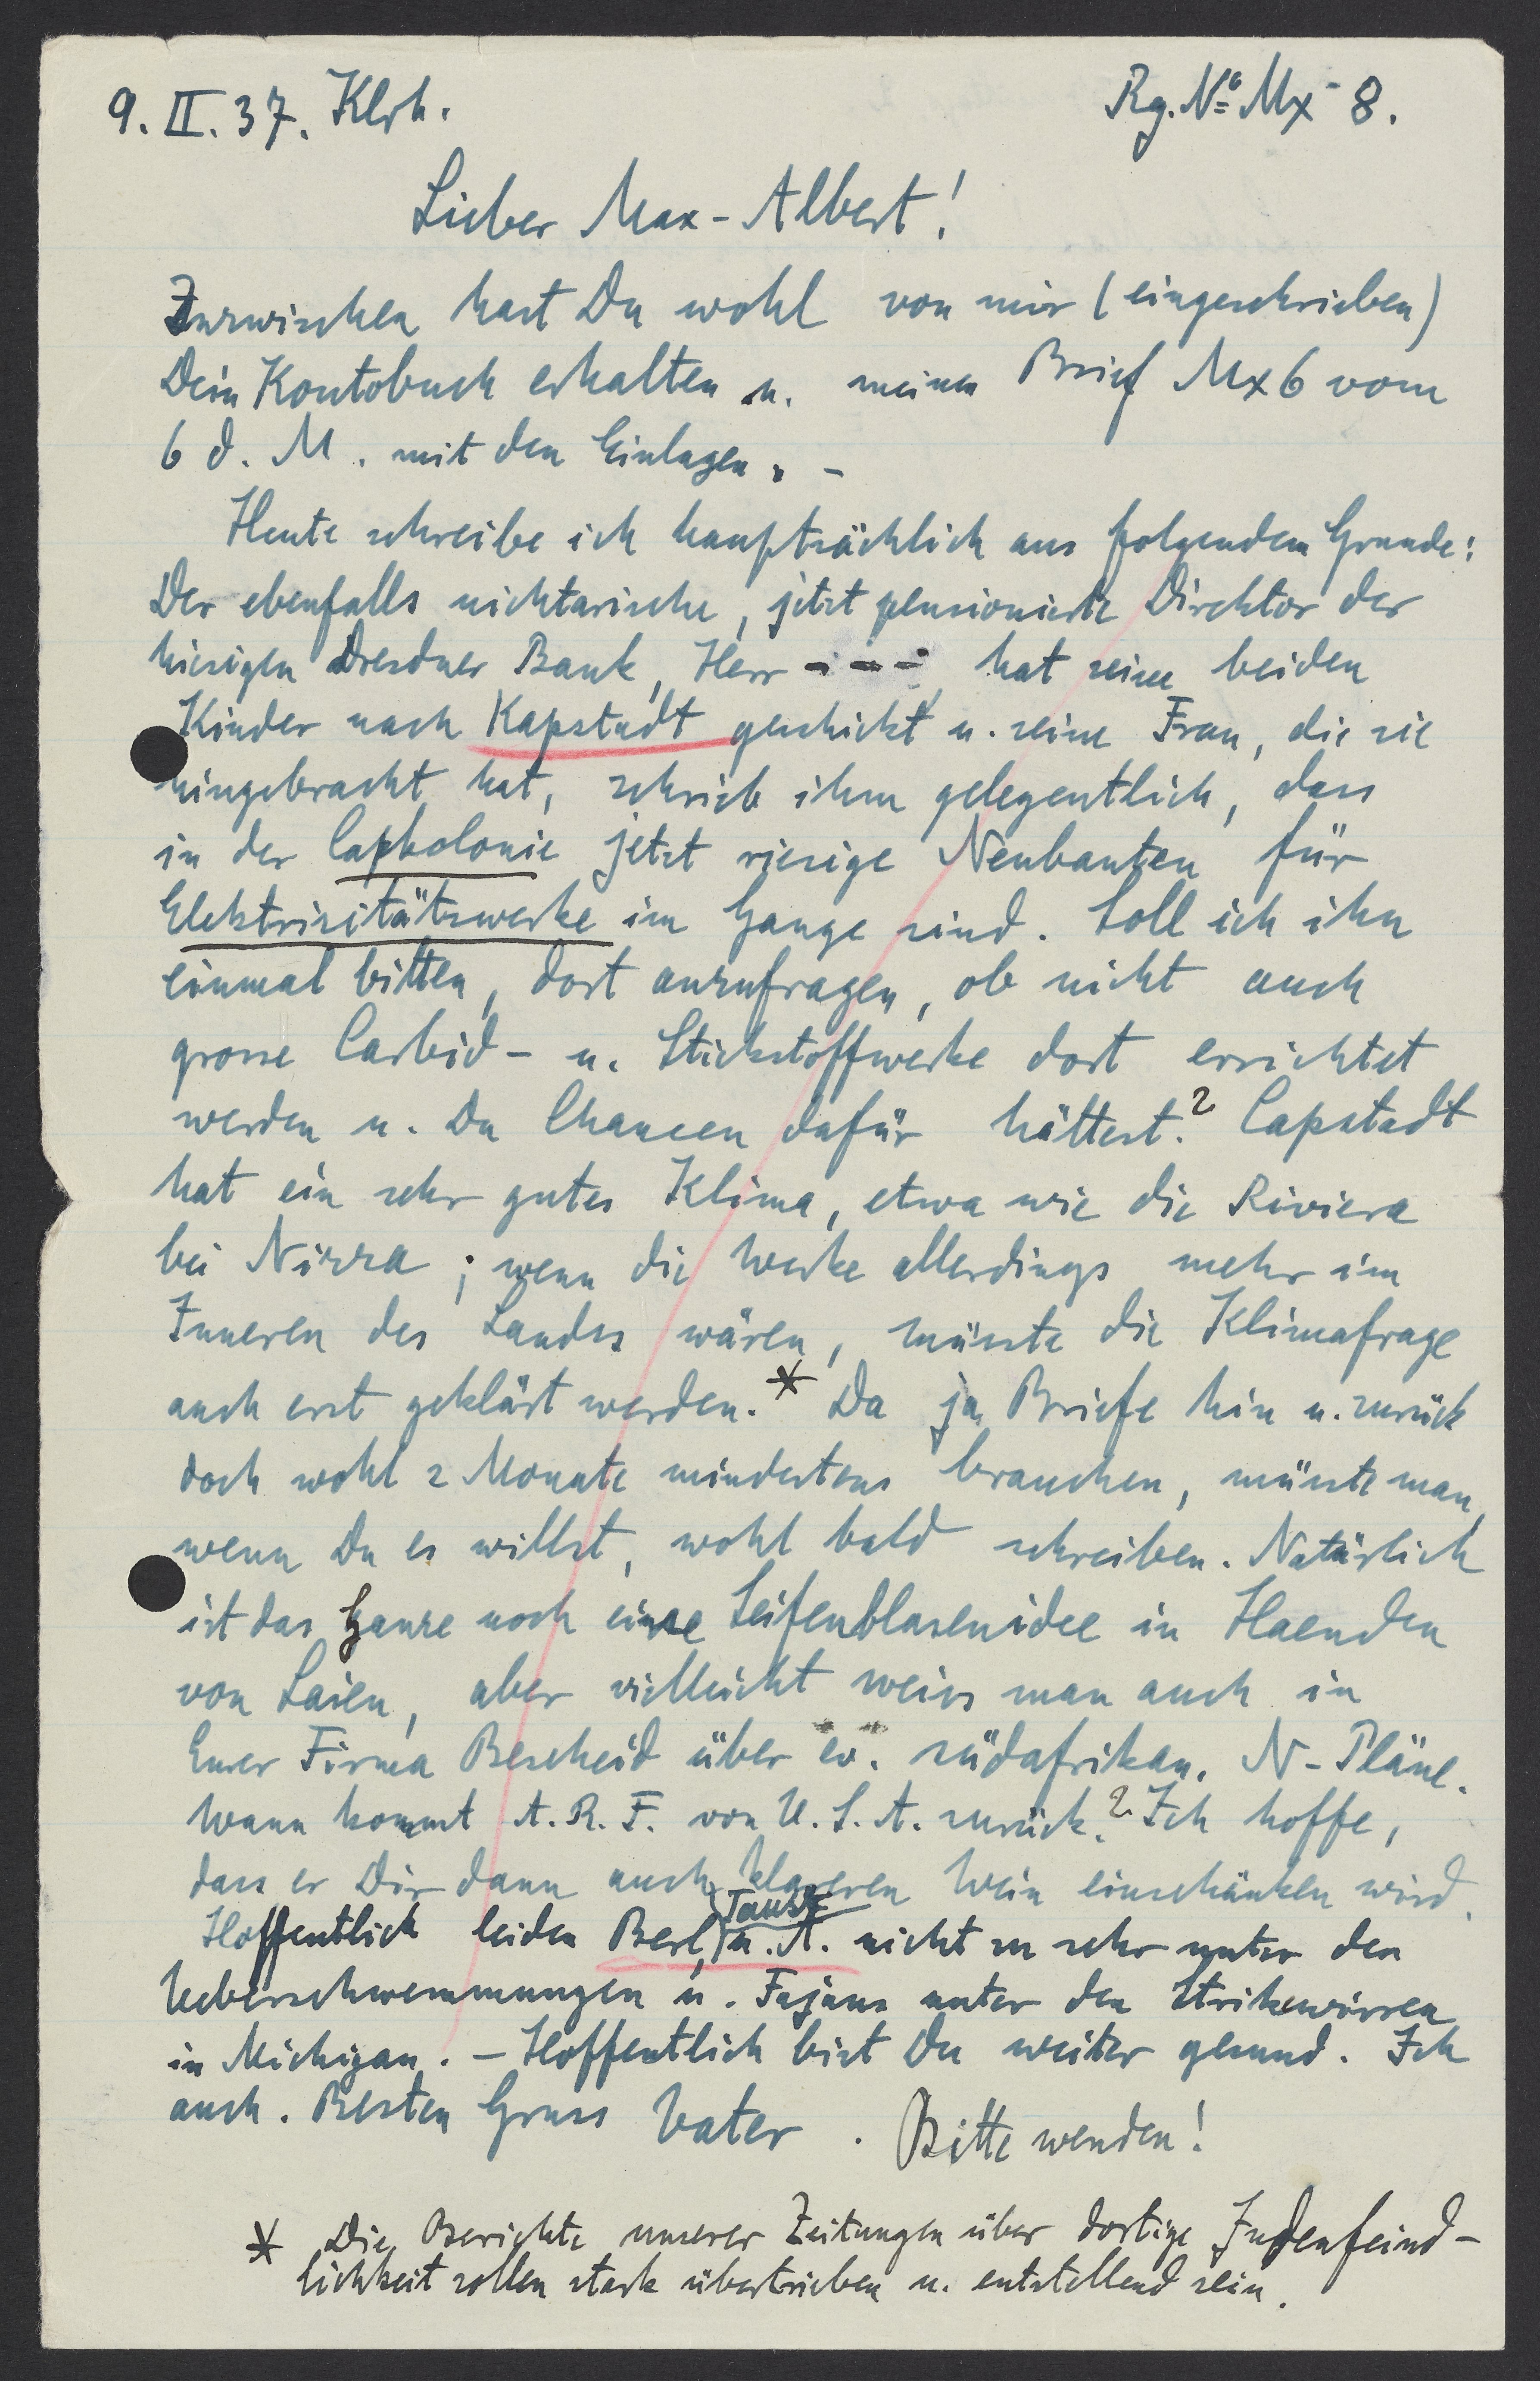 9. II. 37. Klrh.
Rg. No Mx 8.
Lieber Max-Albert!
Inzwischen hast Du wohl von mir (eingeschrieben)
Dein Kontobuch erhalten u. meinen Brief Mx 6 vom
6 d. M. mit den Einlagen. -
Heute schreibe ich hauptsächlich aus folgendem Grunde:
Der ebenfalls nichtarische, jetzt pensionierte Direktor der
hiesigen Dresdner Bank, Herr - - - hat seine beiden
Kinder nach Kapstadt geschickt u. seine Frau, die sie
hingebracht hat, schrieb ihm gelegentlich, dass
in der Capkolonie jetzt riesige Neubauten für
Elektrizitätswerke im Gange sind. Soll ich ihn
einmal bitten, dort anzufragen, ob nicht auch
grosse Carbid- u. Stickstoffwerke dort errichtet
werden u. Du Chancen dafür hättest? Capstadt
hat ein sehr gutes Klima, etwa wie die Riviera
bei Nizza; wenn die Werke allerdings mehr im
Inneren des Landes wären, müsste die Klimafrage
auch erst geklärt werden.* Da ja Briefe hin u. zurück
doch wohl 2 Monate mindestens brauchen, müsste man,
wenn Du es willst, wohl bald schreiben. Natürlich
ist das Ganze noch eine Seifenblasenidee in Haenden
von Laien, aber vielleicht weiss man auch in
Eurer Firma Bescheid über ev. südafrikan. N-Pläne.
Wann kommt A. R. F. von U. S. A. zurück? Ich hoffe,
dass er Dir dann auch klareren Wein einschänken wird.
Hoffentlich leiden Berl, Tausz u. A. nicht zu sehr unter den
Ueberschwemmungen u. Fajans unter den Strikewirren
in Michigan. - Hoffentlich bist Du weiter gesund. Ich
auch. Besten Gruss Vater. Bitte wenden!
* Die Berichte unserer Zeitungen über dortige Judenfeind-
lichkeit sollen stark übertrieben u. entstellend sein.